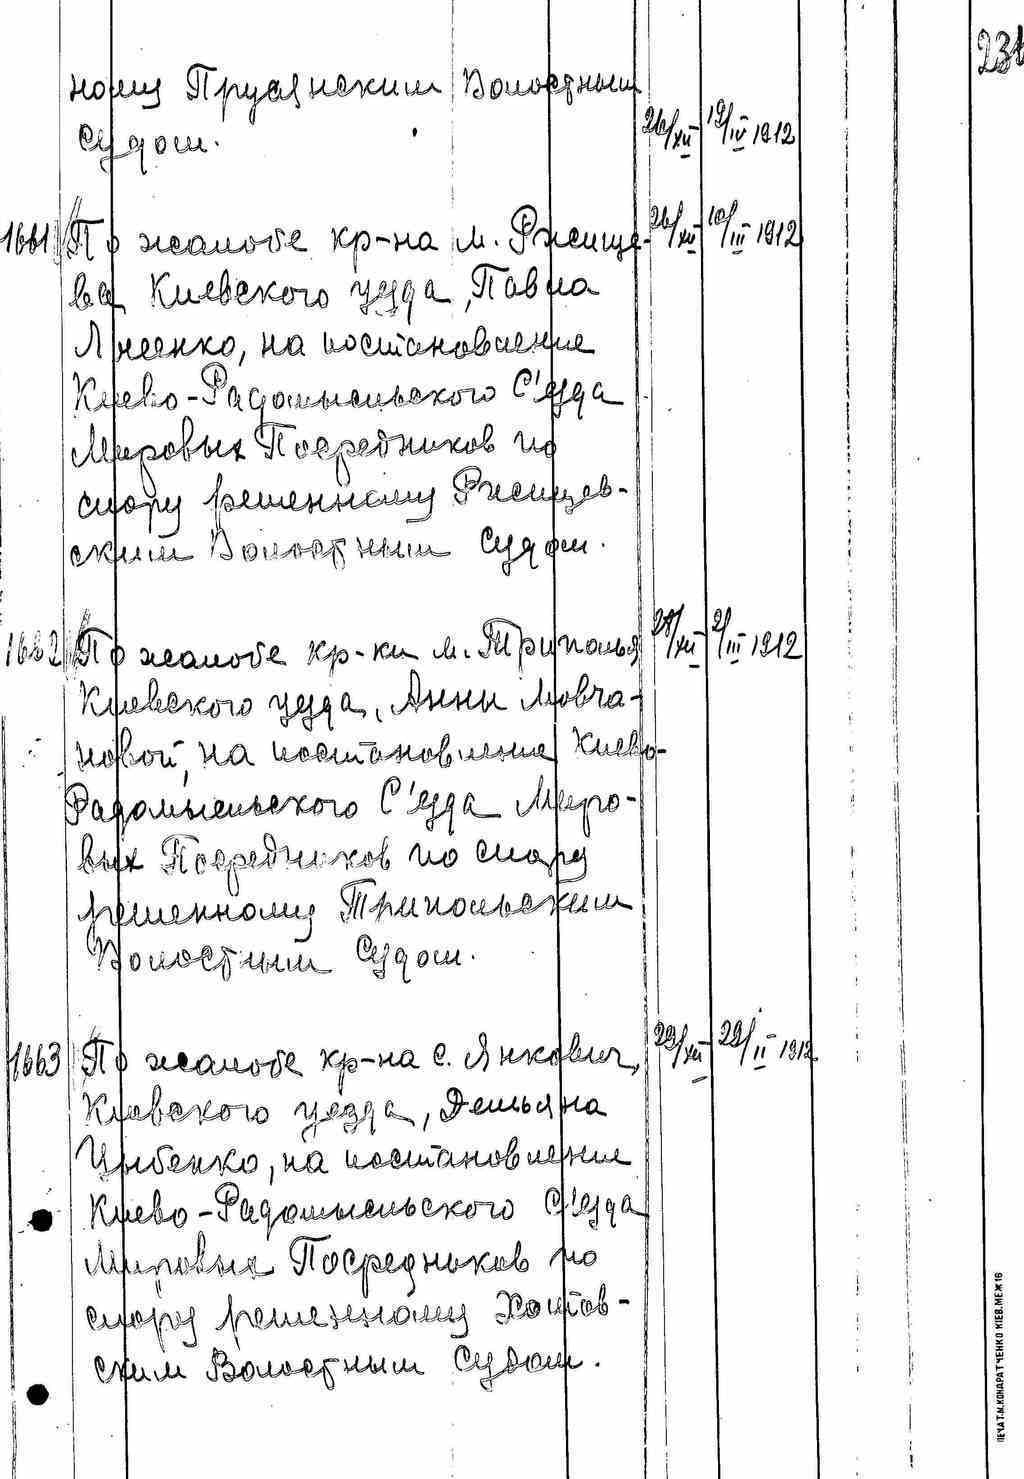 231
ному Прусянским Волостным
Судом. 26/XII 19/IV 1912
1661 По жалобе кр-на м. Ржище- 26/XII 10/III 1912
ва Киевского уезда, Павла
на постановление
Киево-Радомысльского С'езда
Мировых Посредников по
спору решенному Ржищев-
ским Волостным Судом.
1662 По жалобе кр-ки м. Триполья 28/XII 2/III 1912
Киевского уезда, Анны Мовча-
новой, на постановление Киево-
Радомысльского С'езда Миро-
вых Посредников по спору
решенному Трипольским
Волостным Судом.
1663 По жалобе кр-на с. Янкович, 29/XII 22/II 1912
Киевского уезда, Демьяна
Цыбенко, на постановление
Киево-Радомысльского С'езда
Мировых Посредников по
спору решенному Хотов-
ским Волостным Судом.
ПЕЧАТ.М.КОНДРАТЧЕНКО КІЕВ.МЕЖ 16